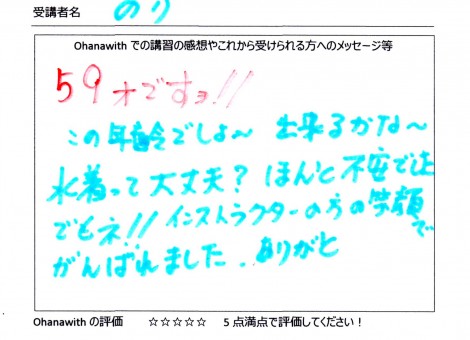 受講者名 のり
Ohanawith での講習の感想やこれから受けられる方へのメッセージ等
59才ですョ!!
この年齢でしょ～ 出来るかな～
水着って大丈夫?ほんと不安で
でもネ!!インストラクターの方の笑顔で
がんばれました.ありがと
Ohanawith の評価 ☆☆☆☆☆ 5 点満点で評価してください！